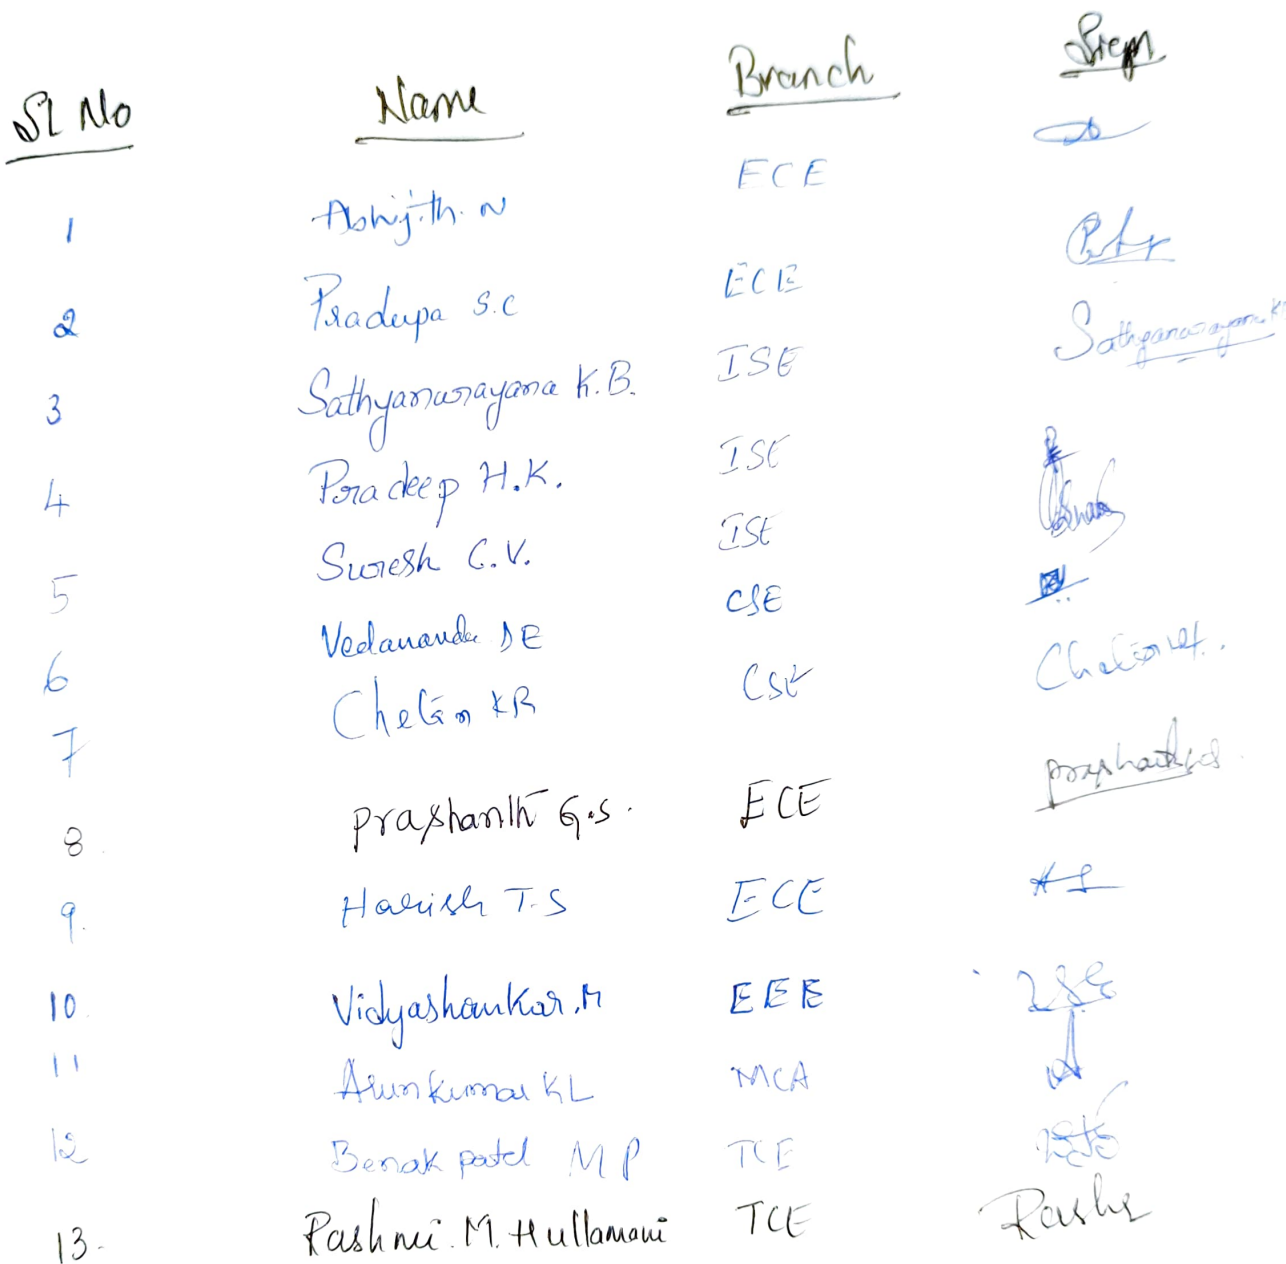 Sl No Name Branch Sign
1 Abhijith. N ECE
2 Pradeepa S.C ECE
3 Sathyanarayana K.B. ISE Sathyanarayana K
4 Pradeep H.K. ISE
5 Suresh C.V. ISE
6 Vedananda D E CSE
7 Chetan K R CSE
8 Prashanth G.S. ECE
9. Harish T.S ECE
10 Vidyashankar.M EEE
11 Arunkumar K L MCA
12 Benak patel M P TCE
13. Rashmi. M. Hullamani TCE